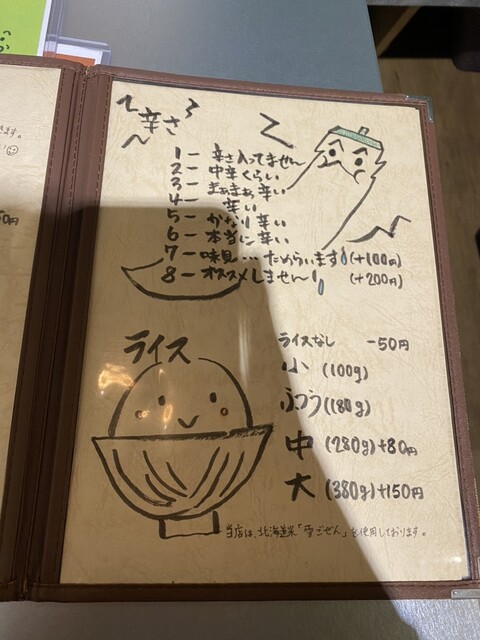 辛さ
1ー 辛さ入ってません
2ー 中辛くらい
3ー まぁまぁ辛い
4ー 辛い
5ー かなり辛い
6ー 本当に辛い
7ー 味見…ためらいます! (+100円)
8ー オススメしません! (+200円)
ライス
ライスなし -50円
小 (100g)
ふつう (180g)
中 (280g) +80円
大 (380g) +150円
当店は、北海道米「雪ごぜん」を使用しております。